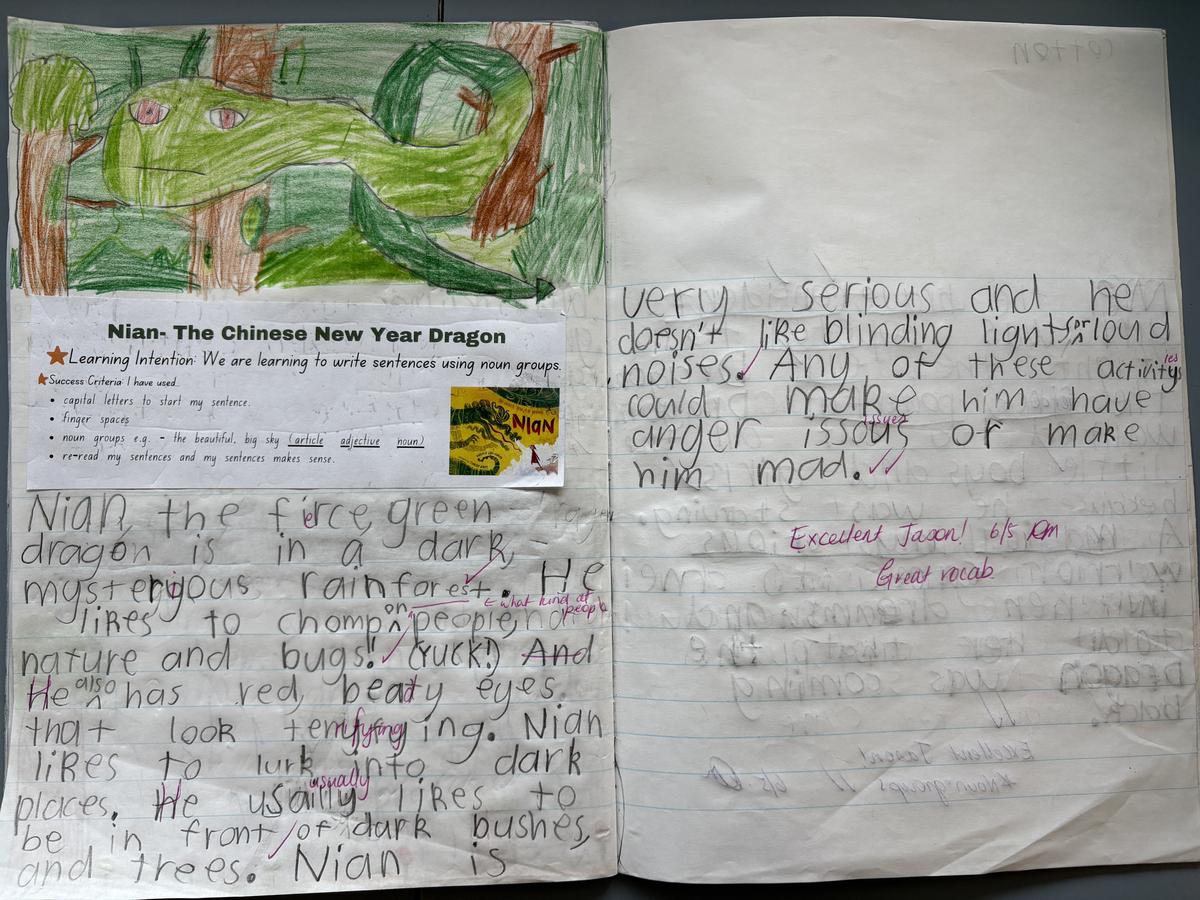 Nian- The Chinese New Year Dragon
Learning Intention: We are learning to write sentences using noun groups.
Success Criteria: I have used...
• capital letters to start my sentence.
• finger spaces
• noun groups e.g. - the beautiful, big sky (article adjective noun)
• re-read my sentences and my sentences makes sense.
NIAN
Nian, the fierce, green
dragon is in a dark,
mysterious rainforest. He
← what kind of people
likes to chomp on people,
nature and bugs! (YUCK!) And
He also has red, beady eyes
that look terrifying. Nian
likes to lurk into dark
usually
places. He usailly likes to
be in front of dark bushes,
and trees. Nian is
very serious and he
doesn't like blinding lights or loud
noises. Any of these activitys
ies
could make him have
issues
anger issous or make
him mad.
Excellent Jason! 6/5
Great vocab